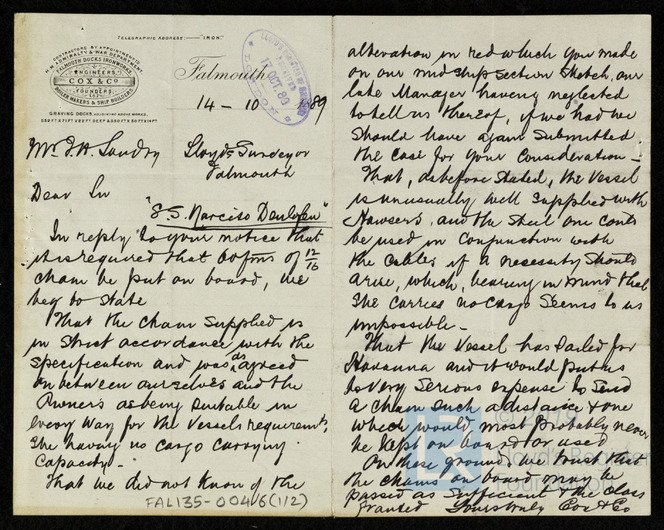 TELEGRAPHIC ADDRESS:— "IRON."
CONTRACTORS BY APPOINTMENT TO
H.M. ADMIRALTY & WAR DEPARTMENT.
FALMOUTH DOCKS IRONWORKS.
ENGINEERS,
COX & CO
FOUNDERS,
BOILER MAKERS & SHIP BUILDERS.
GRAVING DOCKS, ADJOINING ABOVE WORKS,
Falmouth
OCT. 89
14 - 10 1889
Mr. J. H. Sundry Lloyds Surveyor
Falmouth
Dear Sir
"S.S. Narciso Deulofeu"
In reply to your notice that
it is required that 60 fms of 12/16
chain be put on board, we
beg to state
That the chain supplied is
in strict accordance with the
specification and was as agreed
on between ourselves and the
Owners as being suitable in
every way for the Vessels requirements,
she having no cargo carrying
capacity -
That we did not know of the
FAL135-0046(1/2)
alteration in red which you made
on our midship section sketch, our
late Manager having neglected
to tell us thereof, if we had we
should have again submitted
the case for your consideration -
That, as before stated, the Vessel
is unusually well supplied with
Hawsers, and the steel one could
be used in conjunction with
the cables if a necessity should
arise, which, bearing in mind that
she carries no cargo seems to us
impossible -
That the Vessel has sailed for
Havanna and it would put us
to very serious expense to send
a chain such a distance & one
which would most probably never
be kept on board or used
On these grounds we trust that
the chains on board may be
passed as sufficient & the class
granted Yours truly Cox & Co
© 2019
Lloyd's Register
Foundation